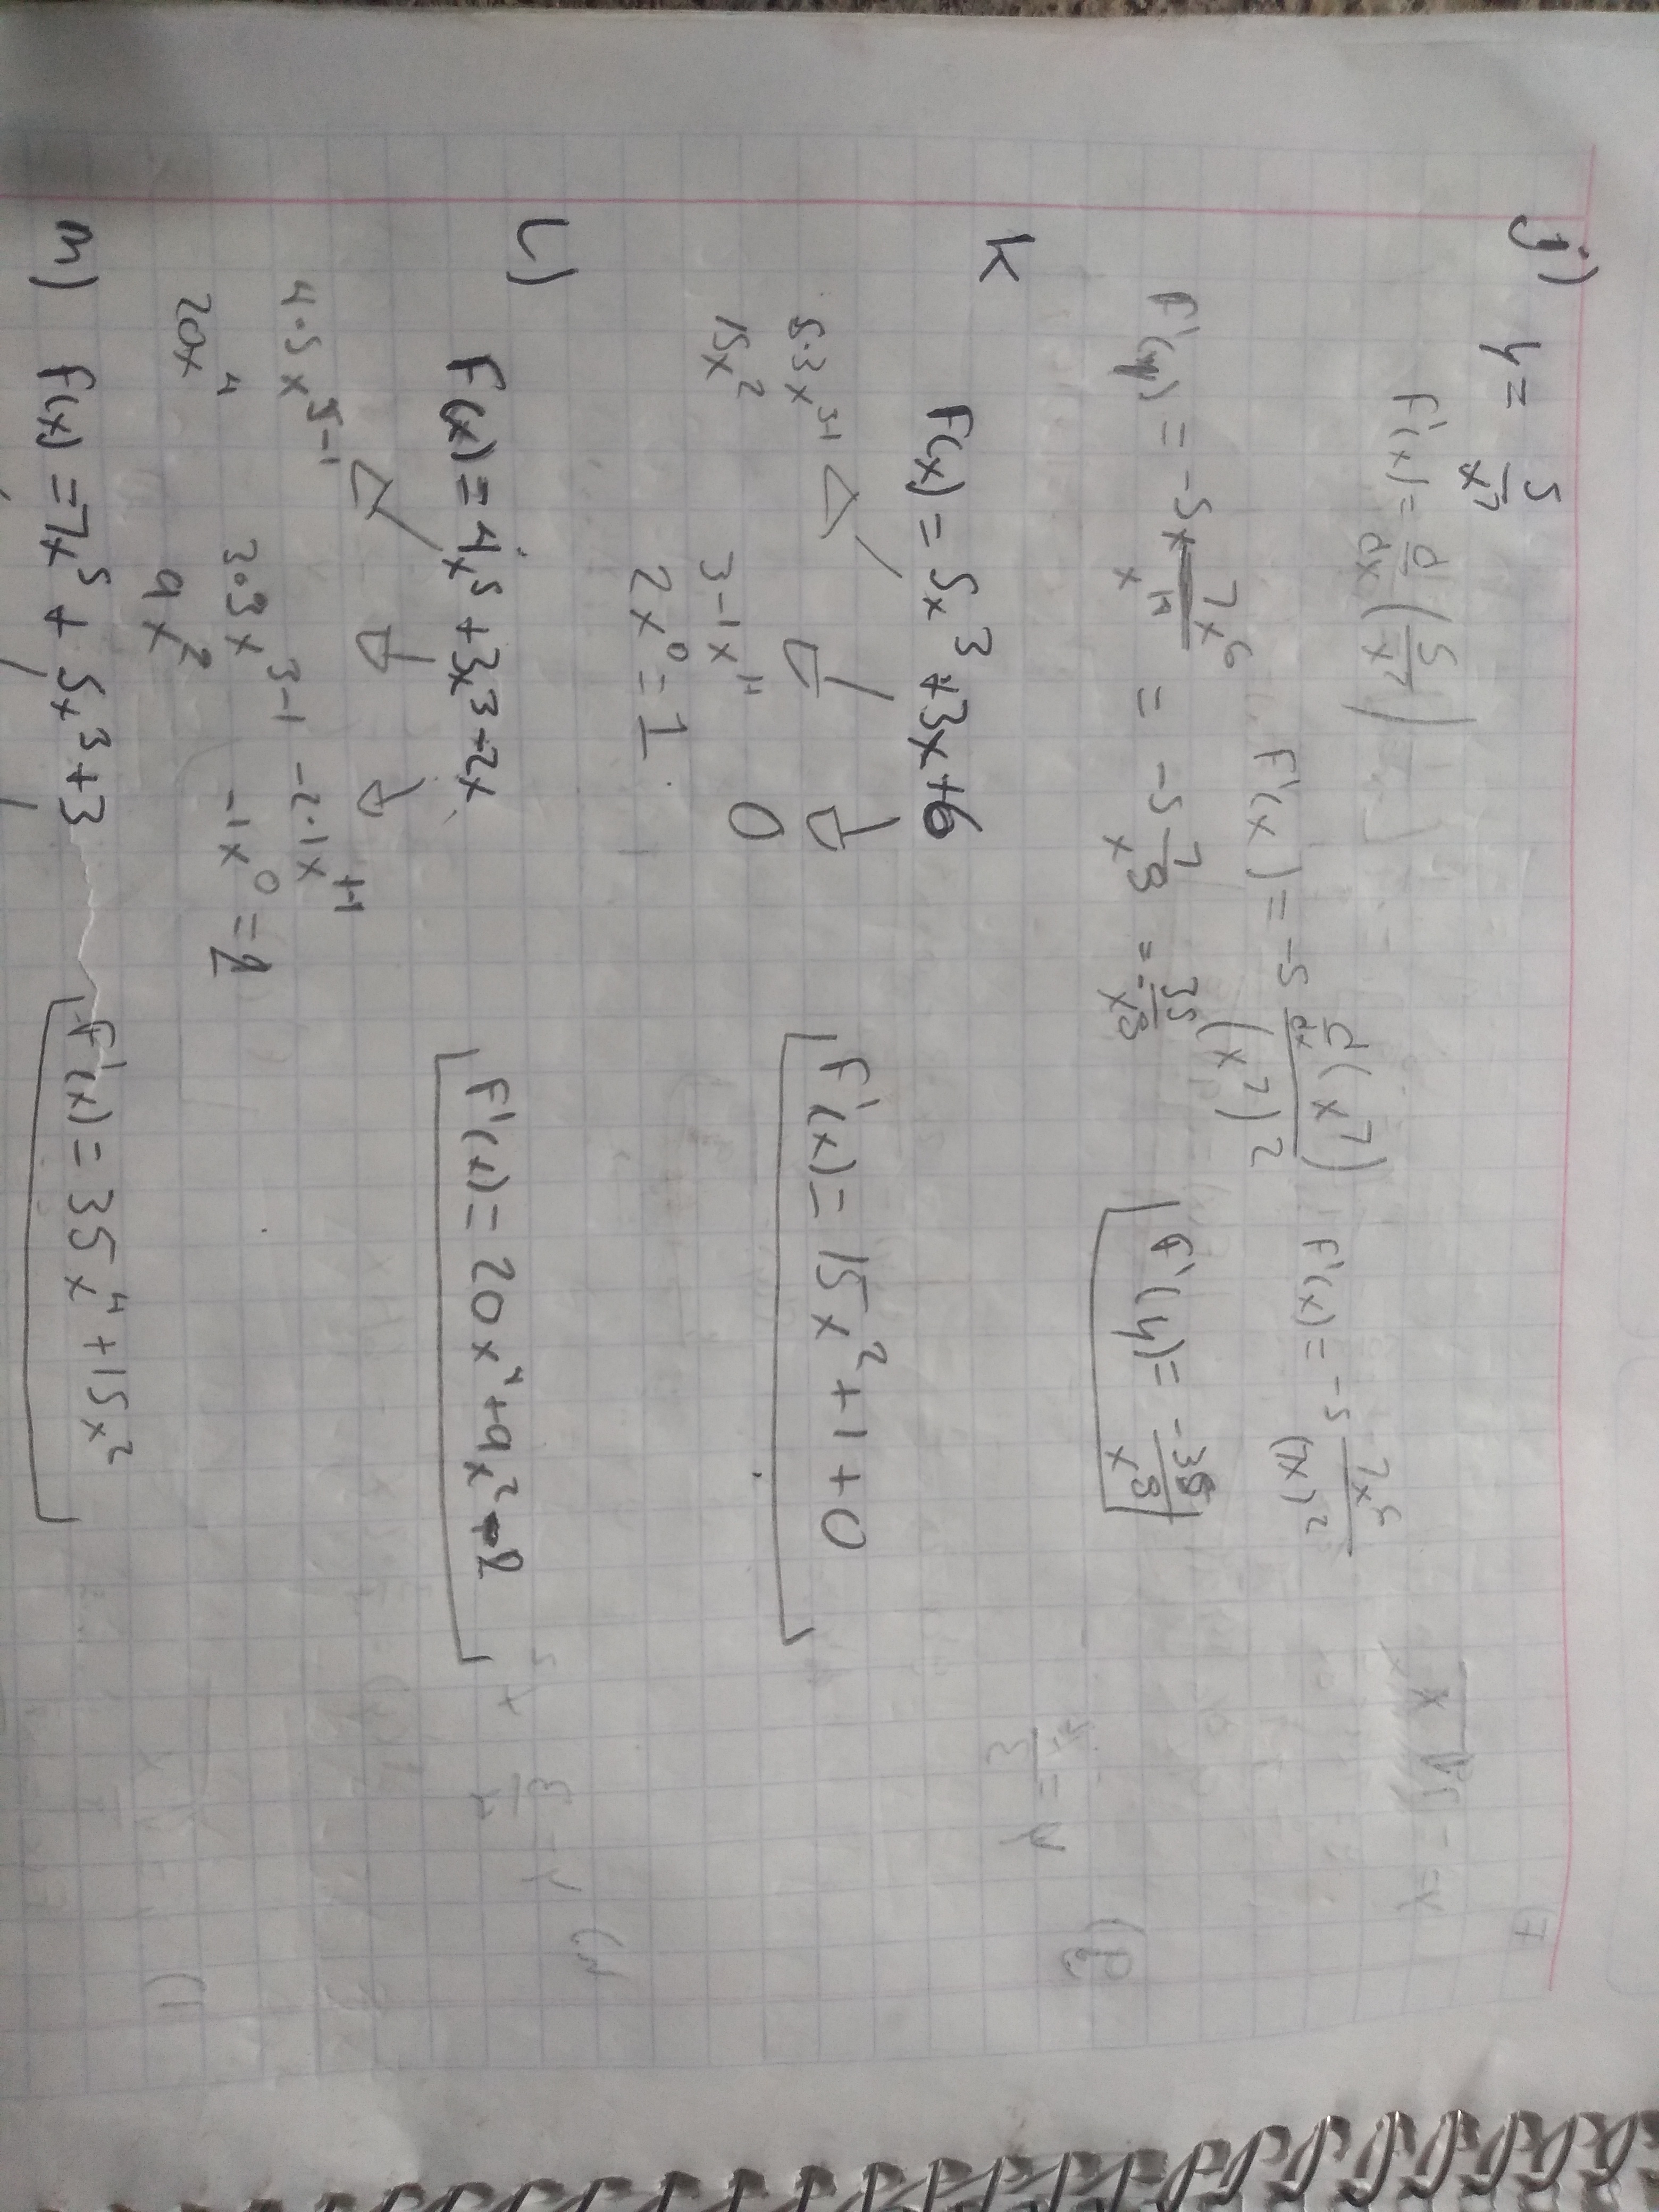 j) y = 5/x⁷
F'(x) = d/dx (5/x⁷)
F'(x) = -5 d/dx (x⁷) / (x⁷)²
F'(x) = -5 7x⁶ / (x⁷)²
F'(y) = -5x 7x⁶/x¹⁴ = -5 7/x⁸ = -35/x⁸
F'(y) = -35/x⁸
K F(x) = 5x³ + 3x + 6
5·3x³⁻¹
15x²
3-1x¹⁻¹
2x⁰ = 1
0
F'(x) = 15x² + 1 + 0
L) F(x) = 4x⁵ + 3x³ - 2x
4·5x⁵⁻¹
20x⁴
3·3x³⁻¹
9x²
-2·1x¹⁻¹
-1x⁰ = 2
F'(x) = 20x⁴ + 9x² - 2
m) f(x) = 7x⁵ + 5x³ + 3
F'(x) = 35x⁴ + 15x²